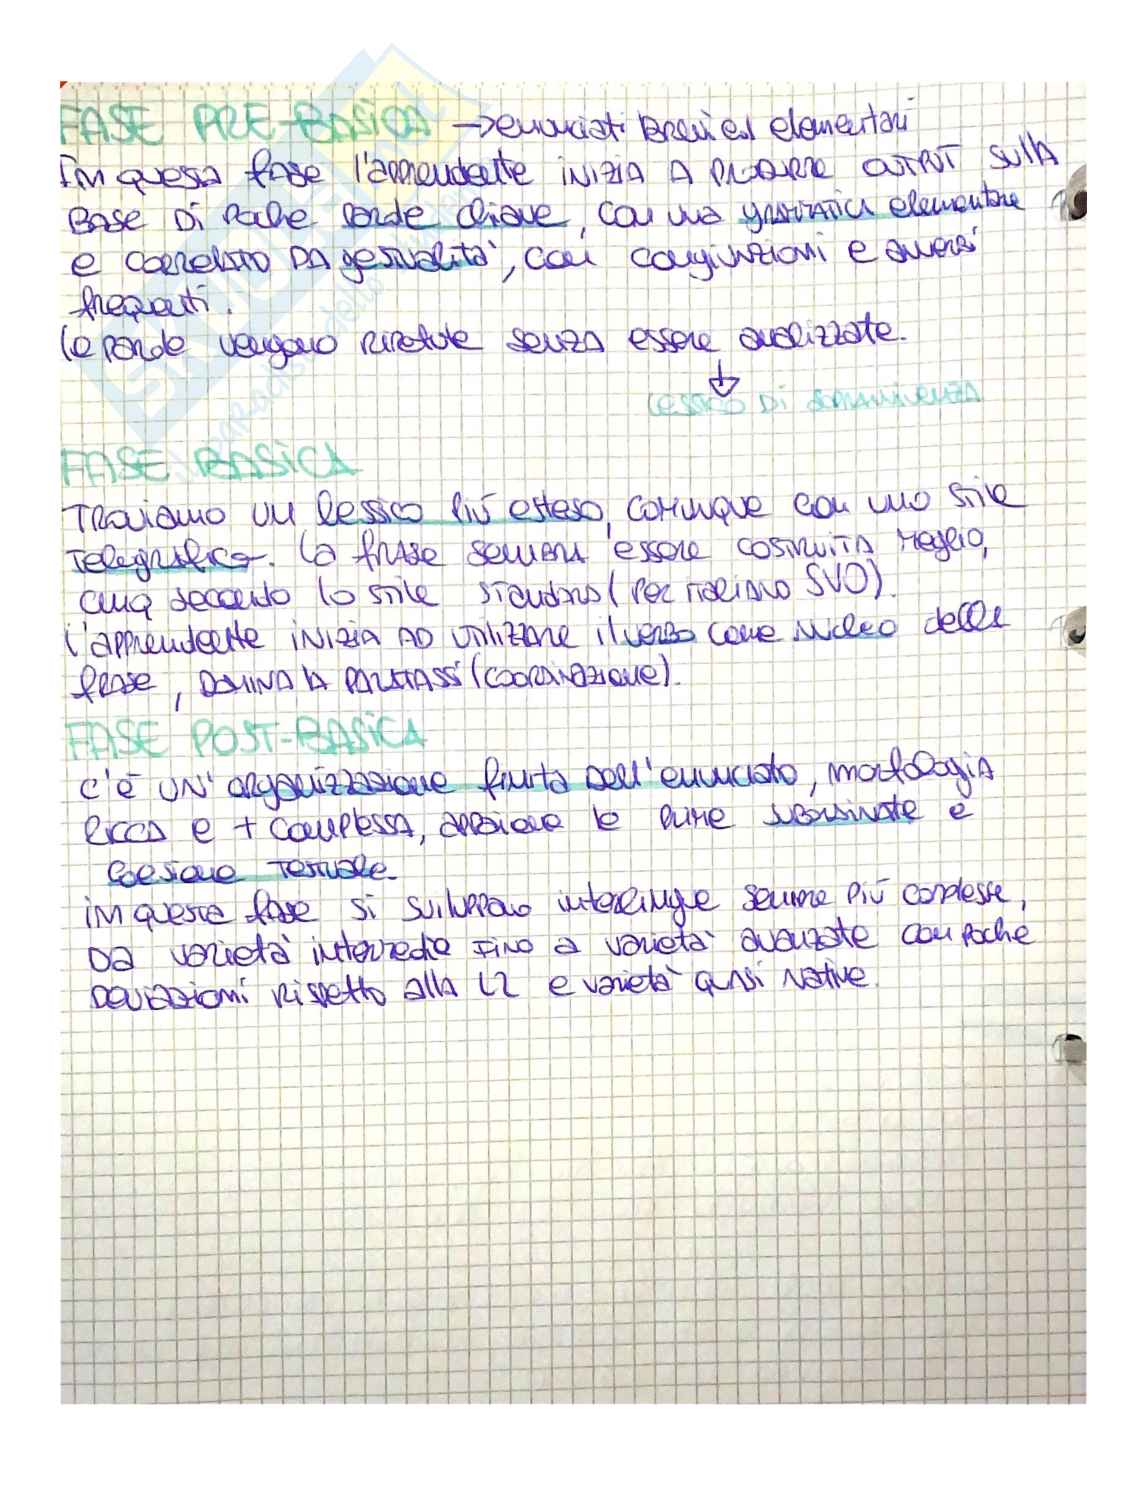 FASE PRE-BASICA → enunciati Brevi ed elementari
In questa fase l'apprendente inizia a produrre output sulla
Base di poche parole chiave, con una grammatica elementare
e corredato da gestualità, con congiunzioni e avverbi
frequenti.
le parole vengono ripetute senza essere analizzate.
↓
lessico di sopravvivenza
FASE BASICA
Troviamo un lessico più esteso, comunque con uno stile
telegrafico. La frase sembra essere costruita meglio,
cmq secondo lo stile standard (per italiano SVO).
L'apprendente inizia ad utilizzare il verbo come nucleo della
frase, domina la paratassi (coordinazione).
FASE POST-BASICA
c'è un'organizzazione finita dell'enunciato, morfologia
ricca e + complessa, appaiono le prime subordinate e
coesione testuale.
in questa fase si sviluppano interlingue sempre più complesse,
da varietà intermedie fino a varietà avanzate con poche
deviazioni rispetto alla L2 e varietà quasi native.